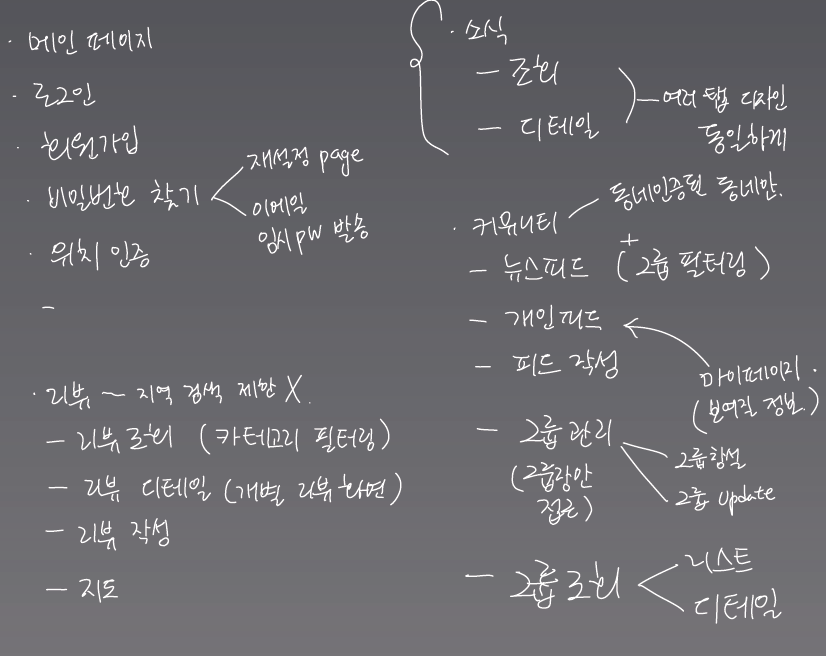 · 메인 페이지
· 로그인
· 회원가입
· 비밀번호 찾기
재설정 page
이메일
임시 pw 발송
· 위치 인증
-
· 리뷰 ~ 지역 검색 제한 X.
- 리뷰 조회 (카테고리 필터링)
- 리뷰 디테일 (개별 리뷰 화면)
- 리뷰 작성
- 지도
· 소식
- 조회
- 디테일
여러 탭 디자인
동일하게
· 커뮤니티
동네인증된 동네만.
- 뉴스피드 (+ 그룹 필터링)
- 개인피드
- 피드 작성
마이페이지.
(보여질 정보.)
- 그룹 관리
(그룹장만
접근)
그룹창설
그룹 update
- 그룹 조회
리스트
디테일